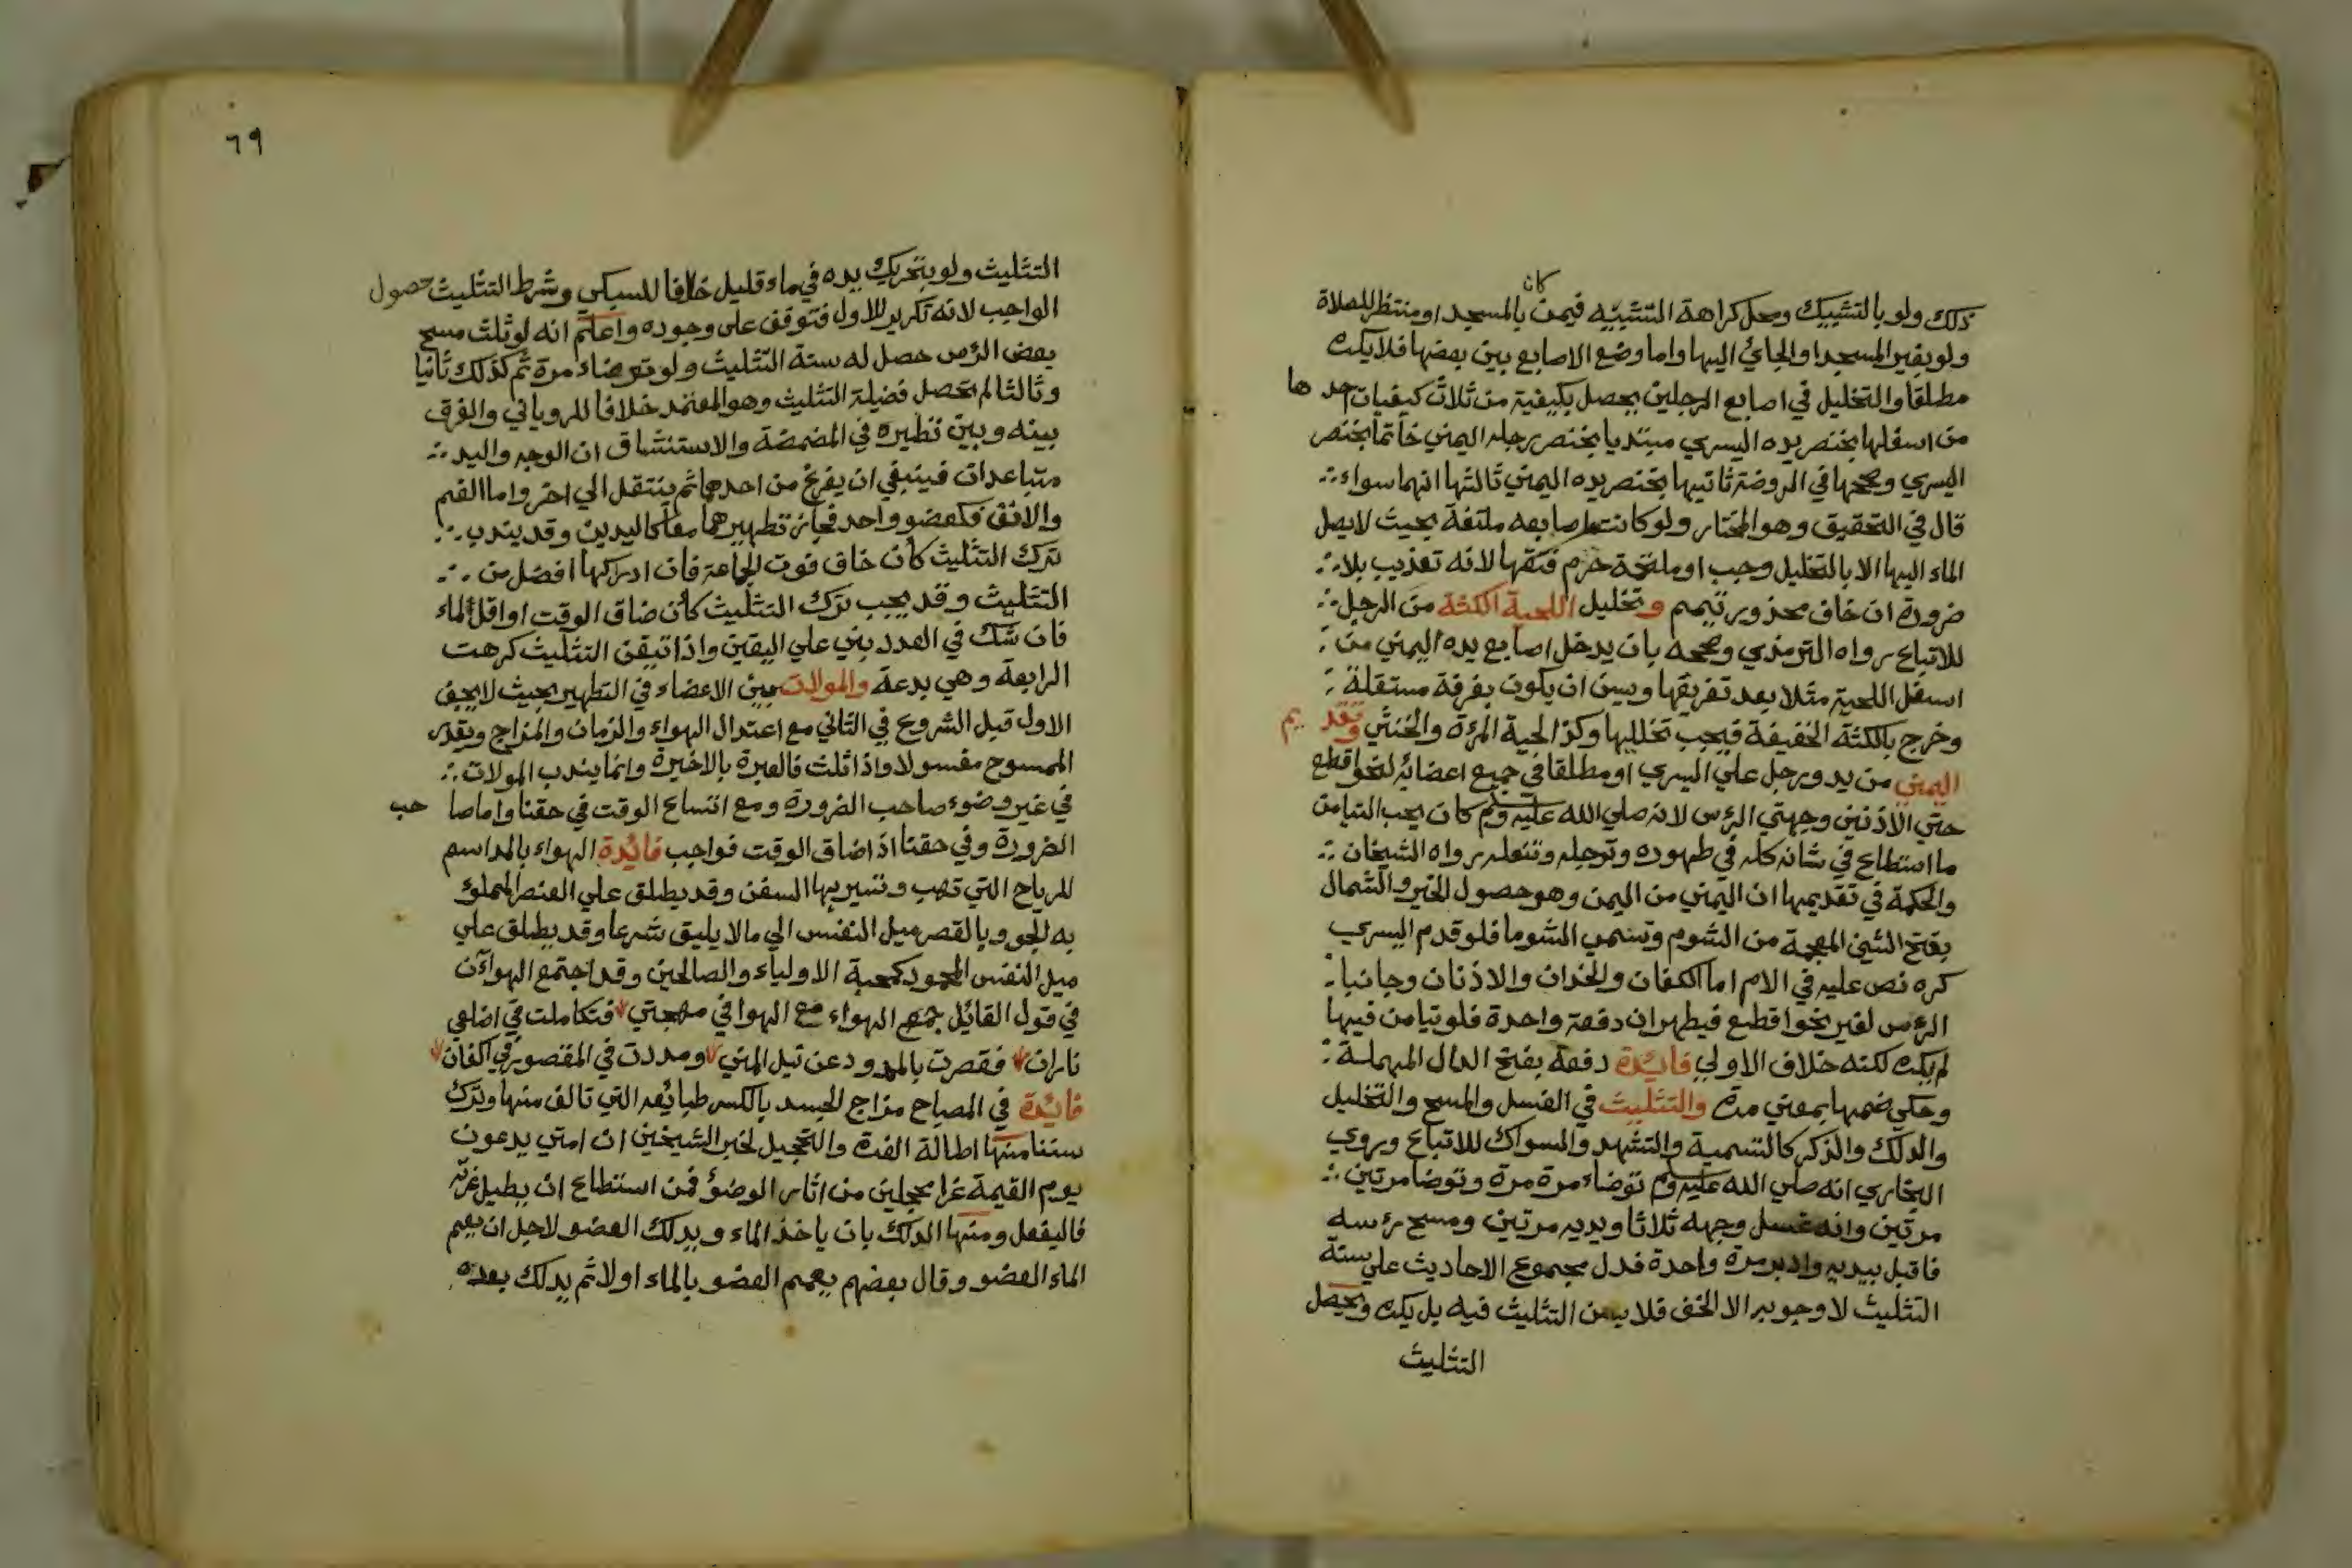 ذلك ولو بالتشبيك ومحل كراهة التشبيه فيمن كان بالمسجد او منتظر للصلاة
ولو بغير المسجد او الجائ اليها واما وضع الاصابع بين بعضها فلا يكره
مطلقا والتخليل في اصابع الرجلين يحصل بكيفية من ثلاث كيفيات احدها
من اسفلها بخنصر يده اليسري مبتديا بخنصر رجله اليمني خاتما بخنصر
اليسري وصححها في الروضة ثانيها بخنصر يده اليمني ثالثها انهما سواء
قال في التحقيق وهو المختار ولو كانت اصابعه ملتفة بحيث لا يصل
الماء اليها الا بالتخليل وجب او ملتحمة حرم فتقها لانه تعذيب بلا
ضرورة ان خاف محذور تيمم وتخليل اللحية الكثة من الرجل
للاتباع رواه الترمذي وصححه بان يدخل اصابع يده اليمني من
اسفل اللحية مثلا بعد تفريقها وسن ان يكون بغرفة مستقلة
وخرج بالكثة الخفيفة فيجب تخليلها وكذا لحية المرءة والخنثي وتقديم
اليمني من يد ورجل علي اليسري او مطلقا في جميع اعضائه لنحو اقطع
حتي الاذنين وجهتي الرءس لانه صلي الله عليه وسلم كان يحب التيامن
ما استطاع في شانه كله في طهوره وترجله وتنعله رواه الشيخان
والحكمة في تقديمها ان اليمني من اليمن وهو حصول الخير والشمال
بفتح الشين المعجمة من الشوم وتسمي الشوما فلو قدم اليسري
كره نص عليه في الام اما الكفان والخدان والاذنان وجانبا
الرءس لغير نحو اقطع فيطهران دفعة واحدة فلو تيامن فيها
لم يكره لكنه خلاف الاولي فائدة دفعة بفتح الدال المهملة
وحكي ضمها بمعني مرة والتثليث في الغسل والمسح والتخليل
والدلك والذكر كالتسمية والتشهد والسواك للاتباع وروي
البخاري انه صلي الله عليه وسلم توضاء مرة مرة وتوضا مرتين
مرتين وانه غسل وجهه ثلاثا ويديه مرتين ومسح رءسه
فاقبل بيديه وادبر مرة واحدة فدل مجموع الاحاديث علي سنة
التثليث لا وجوبه الا الخف فلا يسن التثليث فيه بل يكره ويحصل
التثليث
٦٩
التثليث ولو بتحريك يده في ماء قليل خلافا للسبكي وشرط التثليث حصول
الواجب لانه تكرير للاول فتوقف على وجوده واعلم انه لو ثلث مسح
بعض الرءس حصل له سنة التثليث ولو توضاء مرة ثم كذلك ثانيا
وثالثا لم يحصل فضيلة التثليث وهو المعتمد خلافا للروياني والفرق
بينه وبين نظيره في المضمضة والاستنشاق ان الوجه واليد
متباعدان فينبغي ان يفرغ من احدهما ثم ينتقل الي اخر واما الفم
والانف فكعضو واحد فجاز تطهيرهما معا كاليدين وقد يندب
ترك التثليث كأن خاف فوت الجماعة فان ادراكها افضل من
التثليث وقد يجب ترك التثليث كأن ضاق الوقت او اقل الماء
فان شك في العدد بني علي اليقين واذا تيقن التثليث كرهت
الرابعة وهي بدعة والموالات بين الاعضاء في التطهير بحيث لا يجف
الاول قبل الشروع في الثاني مع اعتدال الهواء والزمان والمزاج ويقدر
الممسوح مغسولا واذا ثلث فالعبرة بالاخيرة وانما يندب المولات
في غير وضوء صاحب الضرورة ومع اتساع الوقت في حقنا واما صاحب
الضرورة وفي حقنا اذا ضاق الوقت فواجب فائدة الهواء بالمد اسم
للرياح التي تهب وتسير بها السفن وقد يطلق علي العنصر المملو
به الجو وبالقصر ميل النفس الي مالا يليق شرعا وقد يطلق علي
ميل النفس المحمود كمحبة الاولياء والصالحين وقد اجتمع الهواآن
في قول القائل جمع الهواء مع الهوا في مهجتي فتكاملت في اضلعي
ناران فقصرت بالممدود عن نيل المني ومددت في المقصور في اكفان
فائدة في المصباح مزاج الجسد بالكسر طبائعه التي تالف منها وترك
سننا منها اطالة الغرة والتحجيل لخبر الشيخين ان امتي يدعون
يوم القيمة غرا محجلين من اثار الوضوء فمن استطاع ان يطيل غرته
فاليفعل ومنها الدلك بان ياخذ الماء ويدلك العضو لاجل ان يعم
الماء العضو وقال بعضهم يعمم العضو بالماء اولا ثم يدلك بعده